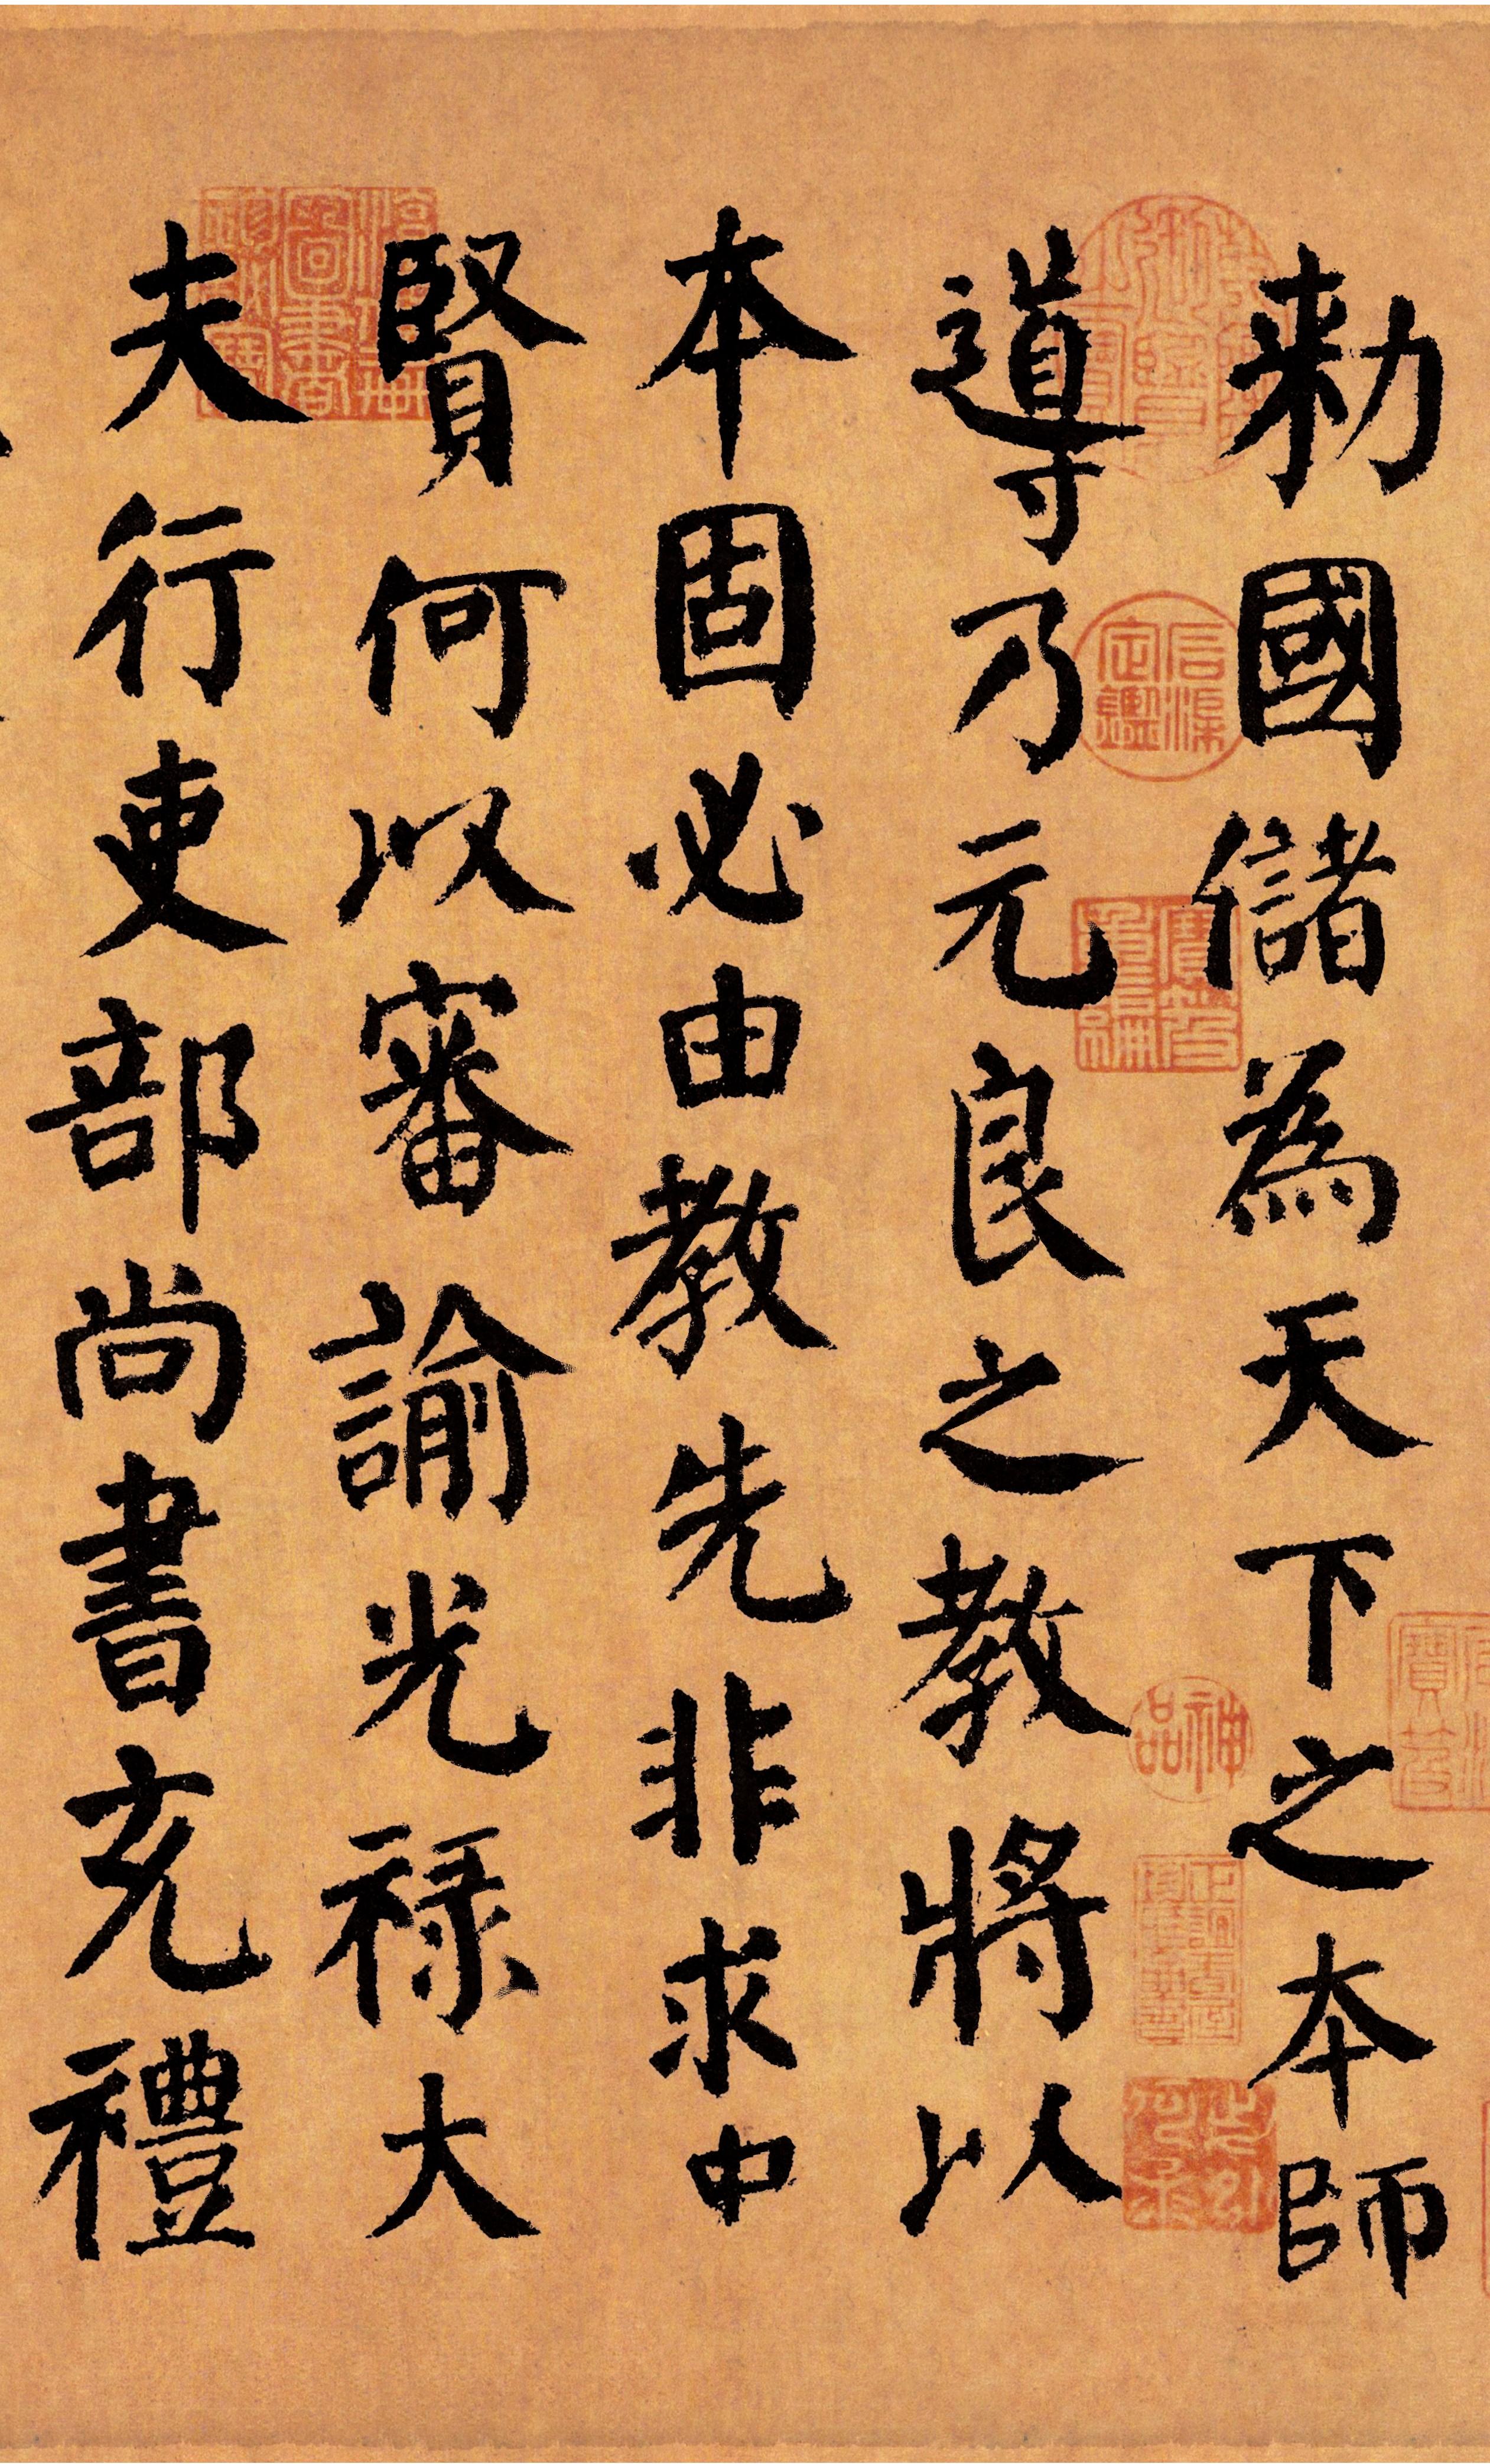 勅國儲為天下之本師
導乃元良之教將以
本固必由教先非求中
賢何以審諭光祿大
夫行吏部尚書充禮
信公珍賞
神品